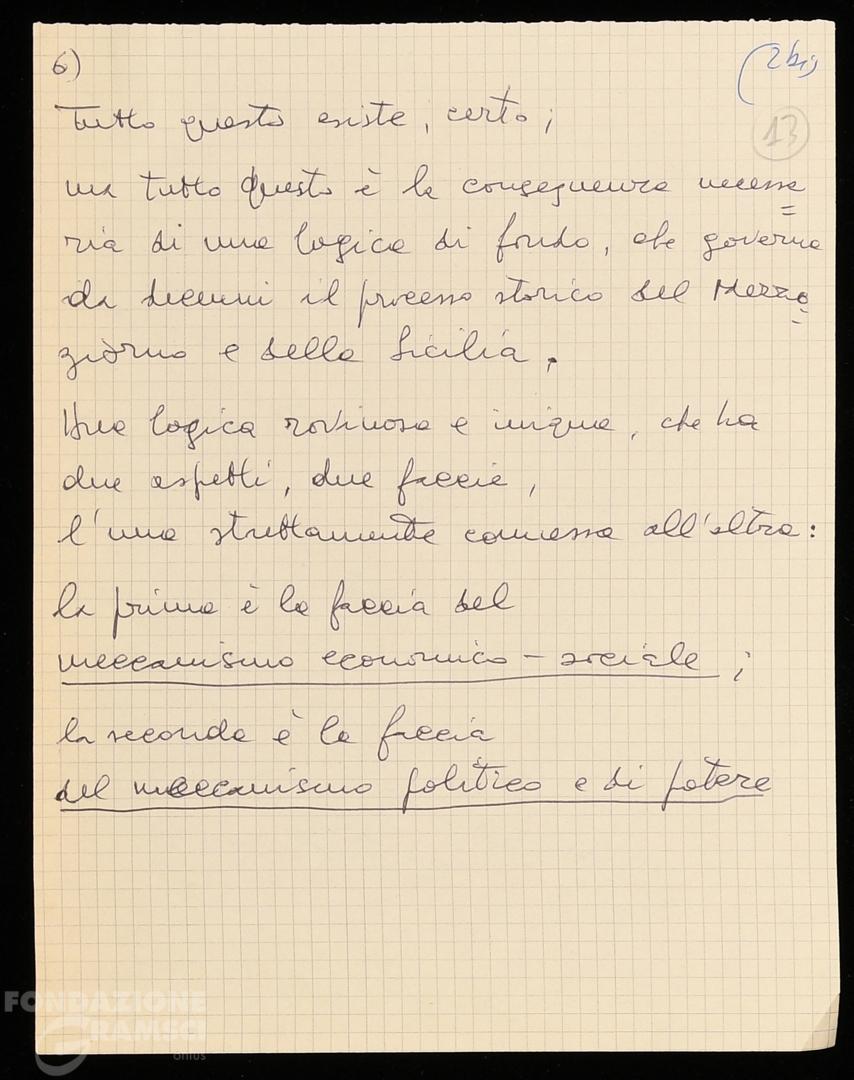 6)
(2 bis
13
Tutto questo esiste, certo;
ma tutto questo è la conseguenza necessa=
ria di una logica di fondo, che governa
da decenni il processo storico del Mezzo=
giorno e della Sicilia.
Una logica rovinosa e iniqua, che ha
due aspetti, due faccie,
l'una strettamente connessa all'altra:
la prima è la faccia del
meccanismo economico-sociale;
la seconda è la faccia
del meccanismo politico e di potere
FONDAZIONE
GRAMSCI
onlus